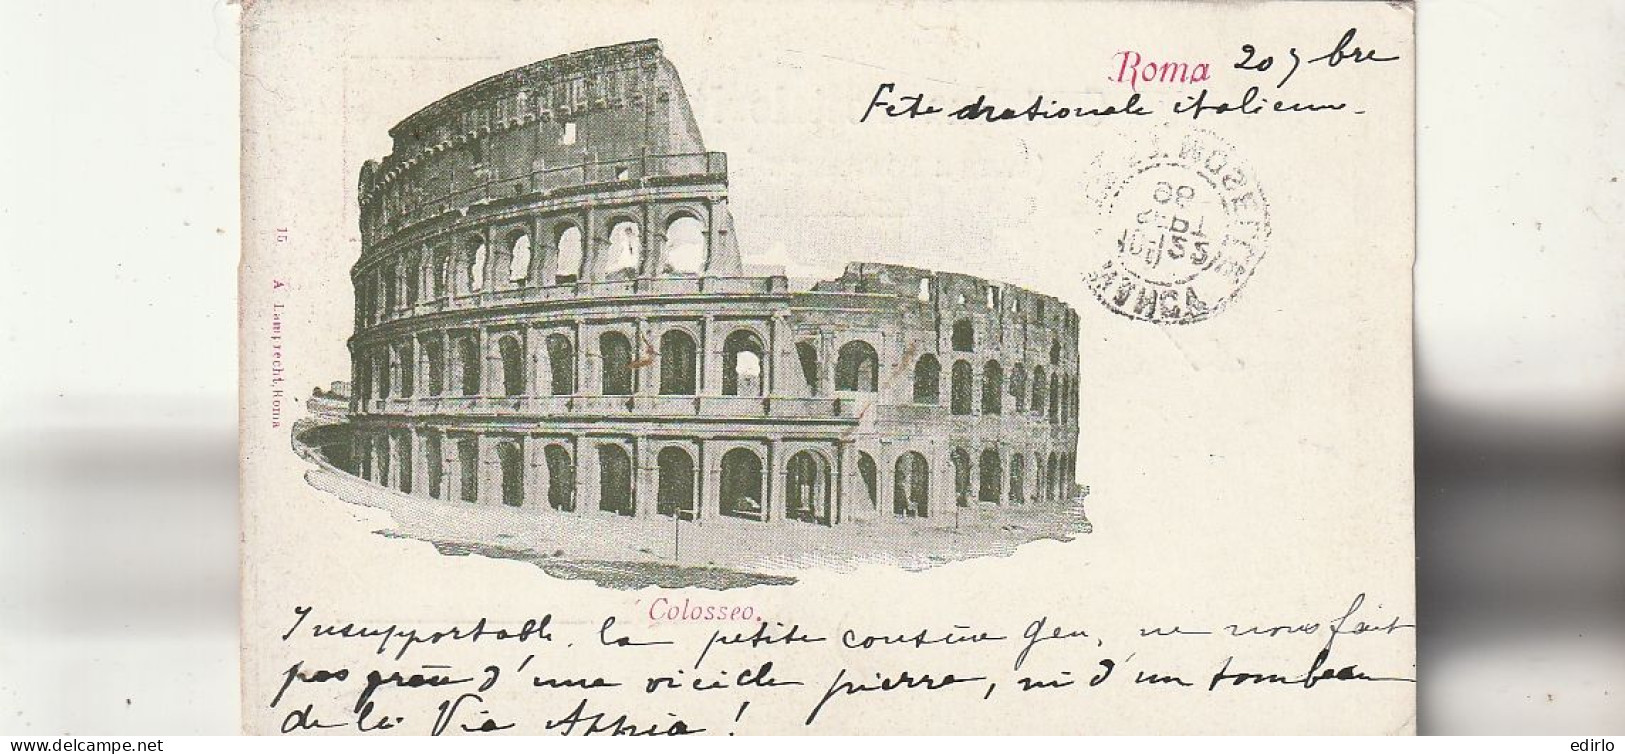 Roma 20 7bre
Fete Nationale italienne -
15 A. Lamprecht, Roma
Colosseo.
Insupportable, la petite cousine Gen, ne nous fait
pas grâce d'une vieille pierre, ni d'un tombeau
de la Via Appia !
edirlo